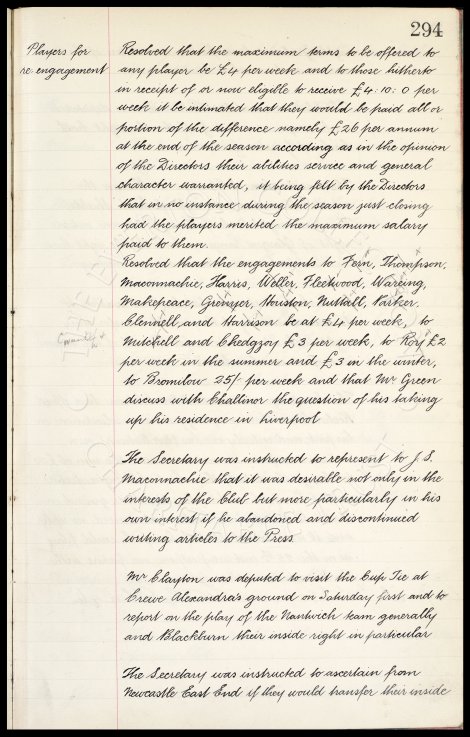 294
Players for
re-engagement
Resolved that the maximum terms to be offered to
any player be £4 per week and to those hitherto
in receipt of or now eligible to receive £4.10.0 per
week it be intimated that they would be paid all or
portion of the difference namely £26 per annum
at the end of the season according as in the opinion
of the Directors their abilities service and general
character warranted, it being felt by the Directors
that in no instance during the season just closing
had the players merited the maximum salary
paid to them.
Resolved that the engagements to Fern, Thompson,
Maconnachie, Harris, Weller, Fleetwood, Wareing,
Makepeace, Grenyer, Houston, Nuttall, Parker,
Clennell, and Harrison be at £4 per week, to
Mitchell and Chedgzoy £3 per week, to Roy £2
per week in the summer and £3 in the winter,
to Bromilow 25/- per week and that Mr Green
discuss with Challinor the question of his taking
up his residence in Liverpool
The Secretary was instructed to represent to J. S.
Maconnachie that it was desirable not only in the
interests of the Club but more particularly in his
own interest if he abandoned and discontinued
writing articles to the Press
Mr Clayton was deputed to visit the Cup Tie at
Crewe Alexandra's ground on Saturday first and to
report on the play of the Nantwich team generally
and Blackburn their inside right in particular
The Secretary was instructed to ascertain from
Newcastle East End if they would transfer their inside